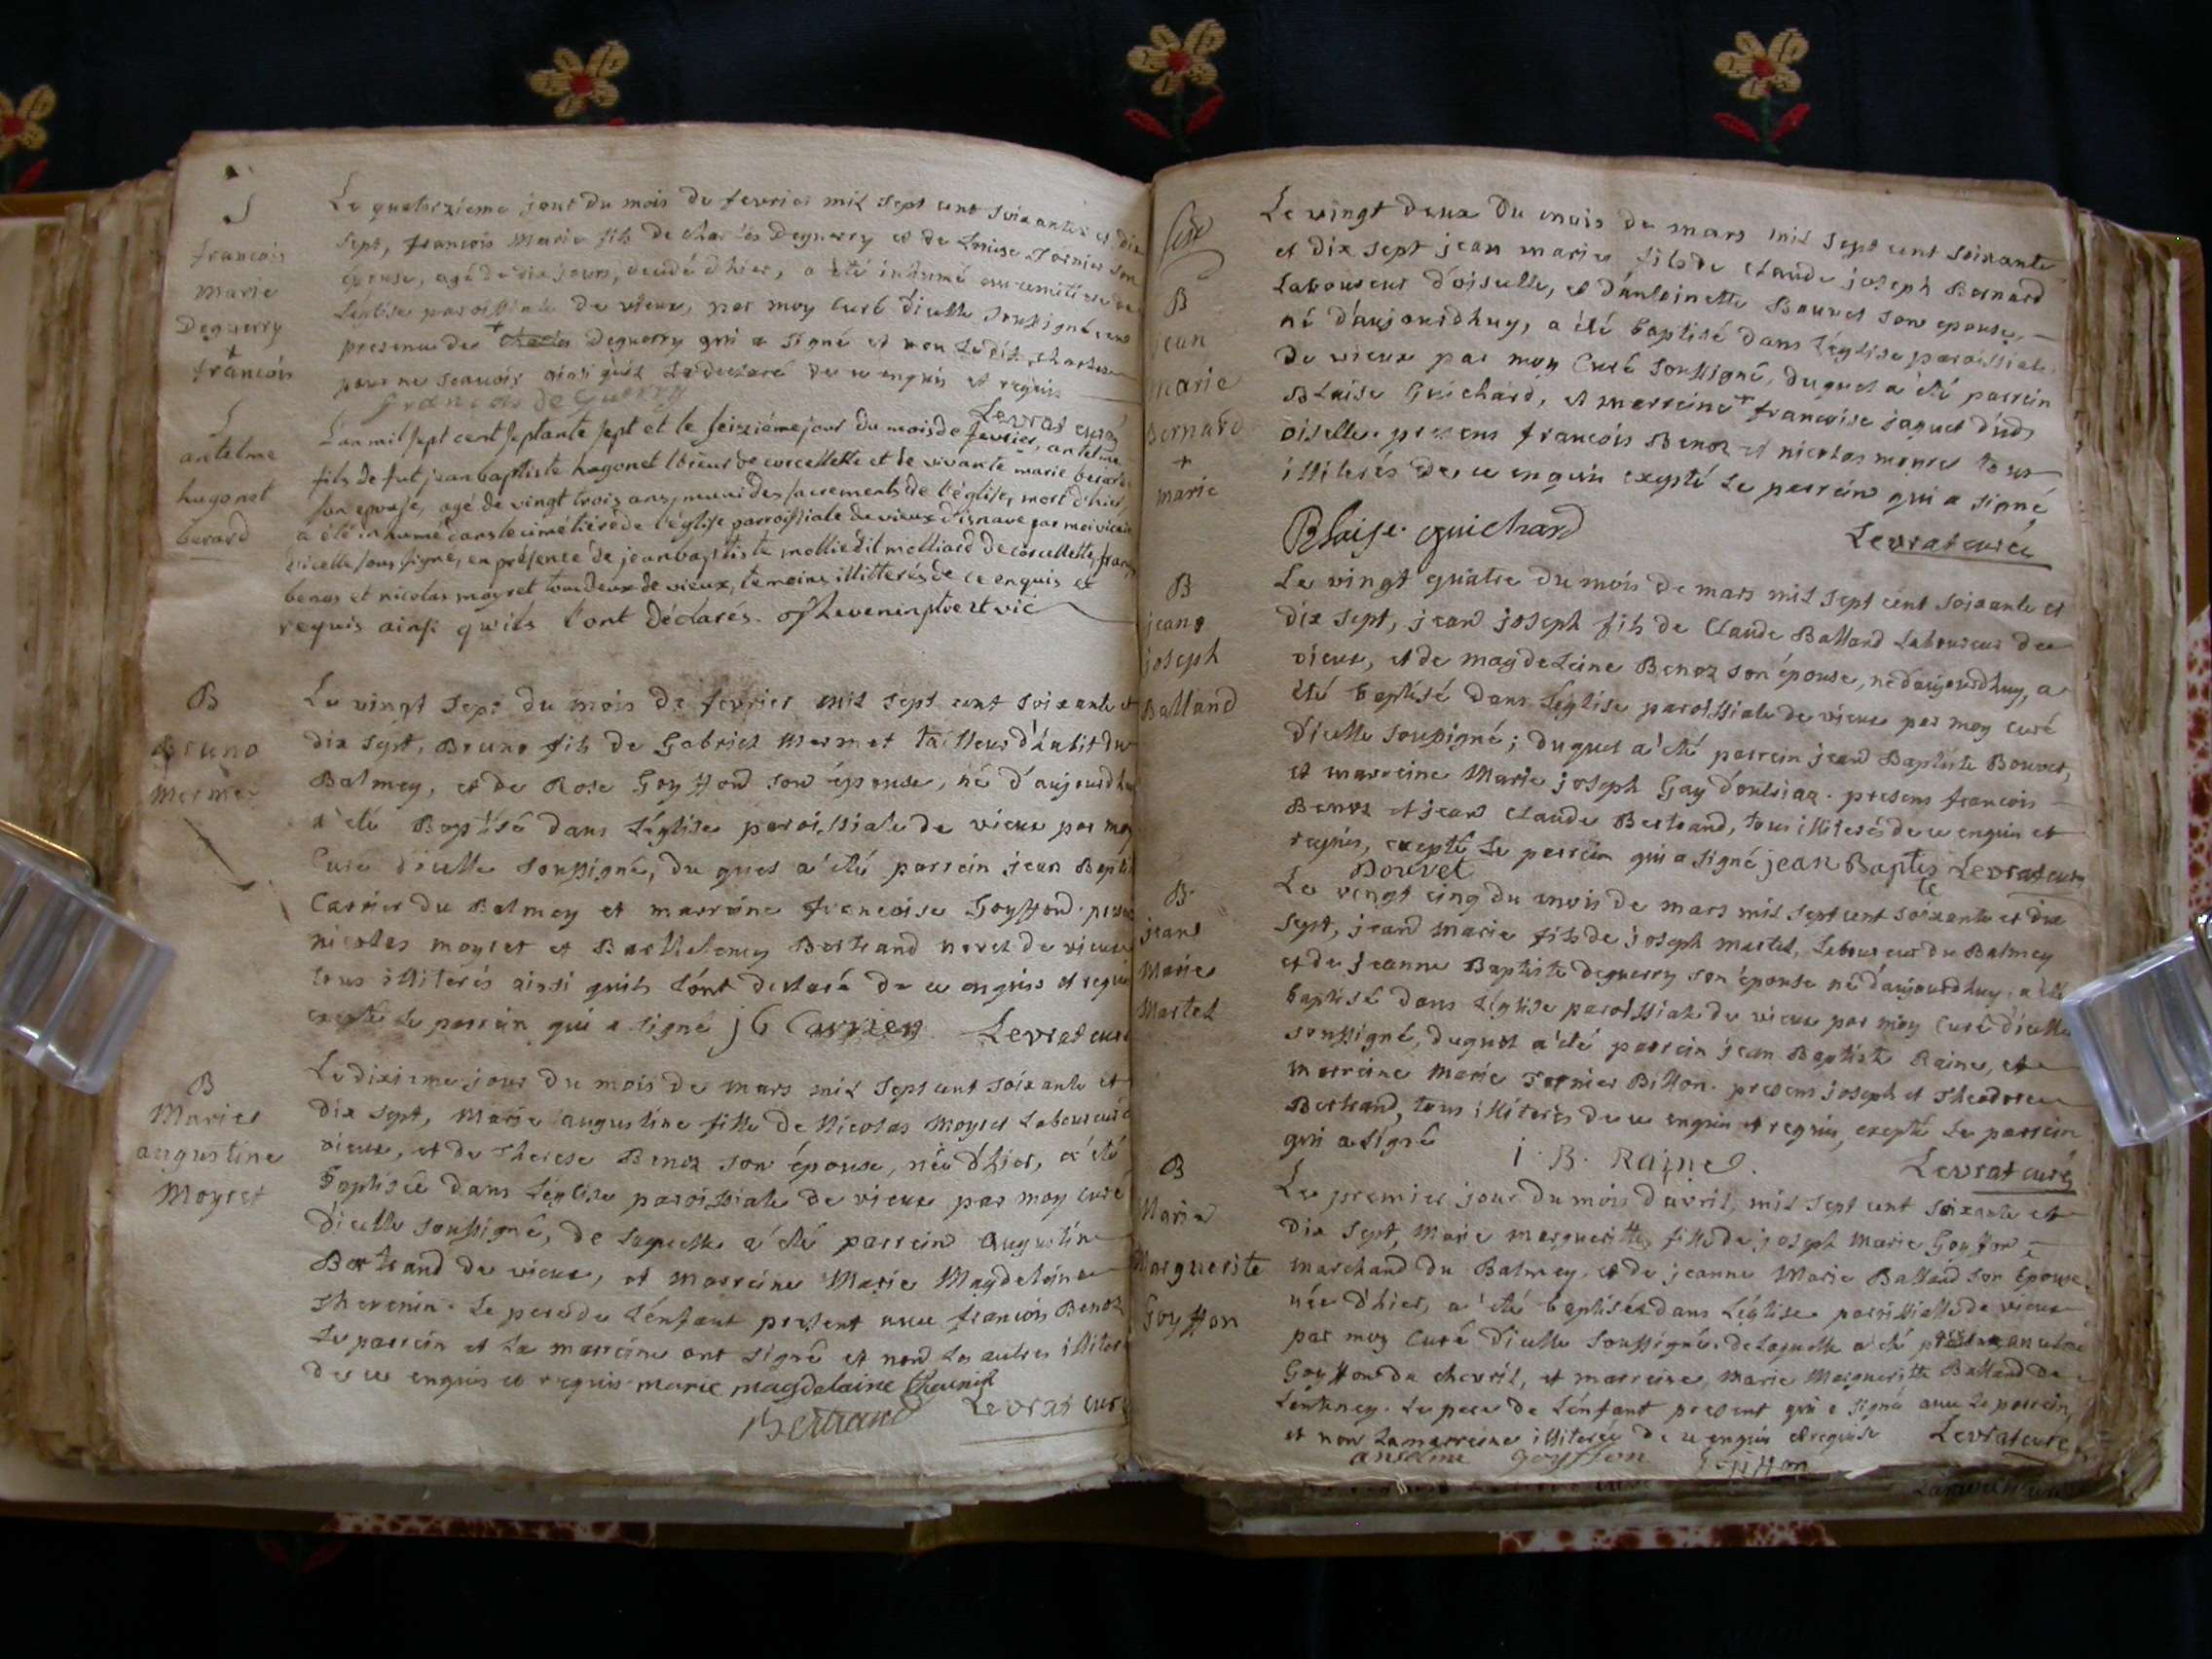 S
francois
Marie
Deguerry
+
francois
Le quatorzieme jour du mois de fevrier mil sept cent soixante et dix
sept, francois Marie fils de charles Deguerry et de Louise Tornier son
épouse, agé de dix jours, decedé d'hier, a été inhumé au cemitiere de
L'église paroissiale de vieux, par moy Curé d'icelle soussigné en
presence de + Deguerry qui a signé et non Ledit charles
pour ne scavoir ainsi quil La declaré de ce enquis et requis
francois de Guerry
Levrat curé
S
antelme
hugonet
berard
L'an mil sept cent septante sept et le seizième jour du mois de fevrier, antelme
fils de fut jean baptiste hugonet de corcellette et de vivante marie berard
son epouse, agé de vingt trois ans, muni des sacrements de l'église, mort d'hier,
a été inhumé dans le cimetière de l'église parroissiale de vieux d'isnave par moi vicaire
d'icelle sous signé, en présence de jean baptiste mollie dit molliard de corcellette,
benoz et nicolas moyret tous deux de vieux, temoins illitterés de ce enquis et
requis ainsi qu'ils l'ont déclarés. Thevenin ptre et vic
B
Bruno
Mermet
Le vingt sept du mois de fevrier mil sept cent soixante et
dix sept, Bruno fils de Gabriel Mermet tailleur d'habit du
Balmey, et de Rose Goyffon son épouse, né d'aujourdhuy
a été Baptisé dans L'église paroissiale de vieux par moy
Curé d'icelle soussigné, du quel a été parrein jean Baptiste
Carrier du Balmey et marreine francoise Goyffond. presens
nicolas moyret et Barthelemy Bertrand de vieux
tous illiterés ainsi quils L'ont declaré de ce enquis et requis
excepté Le parrein qui a signé j b Carrier Levrat curé
B
Marie
augustine
Moyret
Le dixieme jour du mois de mars mil sept cent soixante et
dix sept, Marie augustine fille de Nicolas Moyret Laboureur de
vieux, et de Therese Benoz son épouse, née d'hier, a été
Baptisée dans L'église paroissiale de vieux par moy curé
d'icelle soussigné, de Laquelle a été parrein Augustin
Bertrand de vieux, et Marreine Marie Magdeleine
Thevenin. Le pere de L'enfant present avec francois Benoz
Le parrein et La marreine ont signé et non Les autres illiterés
de ce enquis et requis marie magdelaine thevenin
Bertrand Levrat curé
B
jean
marie
Bernard
+
marie
Le vingt deux du mois de mars mil sept cent soixante
et dix sept jean marie fils de Claude joseph Bernard
Laboureur d'oiselle, et d'antoinette Bouvet son epouse,
né d'aujourdhuy, a été baptisé dans L'église paroissiale
de vieux par moy Curé soussigné, duquel a été parrein
Blaise Guichard, et marreine + francoise jaquet dud
oiselle. presens francois Benoz et nicolas moyret tous
illiterés de ce enquis excepté Le parrein qui a signé
Blaise guichard Levrat curé
B
jean
joseph
Balland
Le vingt quatre du mois de mars mil sept cent soixante et
dix sept, jean joseph fils de Claude Balland Laboureur de
vieux, et de magdeleine Benoz son épouse, né d'aujourdhuy, a
été baptisé dans L'église paroissiale de vieux par moy curé
d'icelle soussigné; duquel a été parrein jean Baptiste Bouvet,
et marreine Marie joseph Gay d'oulriaz. presens francois
Benoz et jean Claude Bertrand, tous illiterés de ce enquis et
requis, excepté Le parrein qui a signé jean Baptiste Levrat curé
Bouvet
B
jean
Marie
Martel
Le vingt cinq du mois de mars mil sept cent soixante et dix
sept, jean Marie fils de joseph martel, Laboureur du Balmey
et de jeanne Baptiste Deguerry son épouse né d'aujourdhuy, a été
baptisé dans L'église paroissiale de vieux par moy Curé d'icelle
soussigné, duquel a été parrein jean Baptiste Raine, et
marreine Marie Tornier Billon. presens joseph et Theodore
Bertrand, tous illiterés de ce enquis et requis, excepté Le parrein
qui a signé i. B. Raine. Levrat curé
B
Marie
Marguerite
Goyffon
Le premier jour du mois d'avril, mil sept cent soixante et
dix sept, Marie marguerite fille de joseph Marie Goyffon
marchand du Balmey, et de jeanne Marie Balland son épouse
née d'hier, a été baptisée dans L'église paroissialle de vieux
par moy Curé d'icelle soussigné. de Laquelle a été
Goyffon de chevril, et marreine Marie Margueritte Balland de
Lentenay. Le pere de L'enfant present qui a signé avec Le parrein,
et non La marreine illiterée de ce enquis et requise Levrat curé
anselme goyffon goyffon